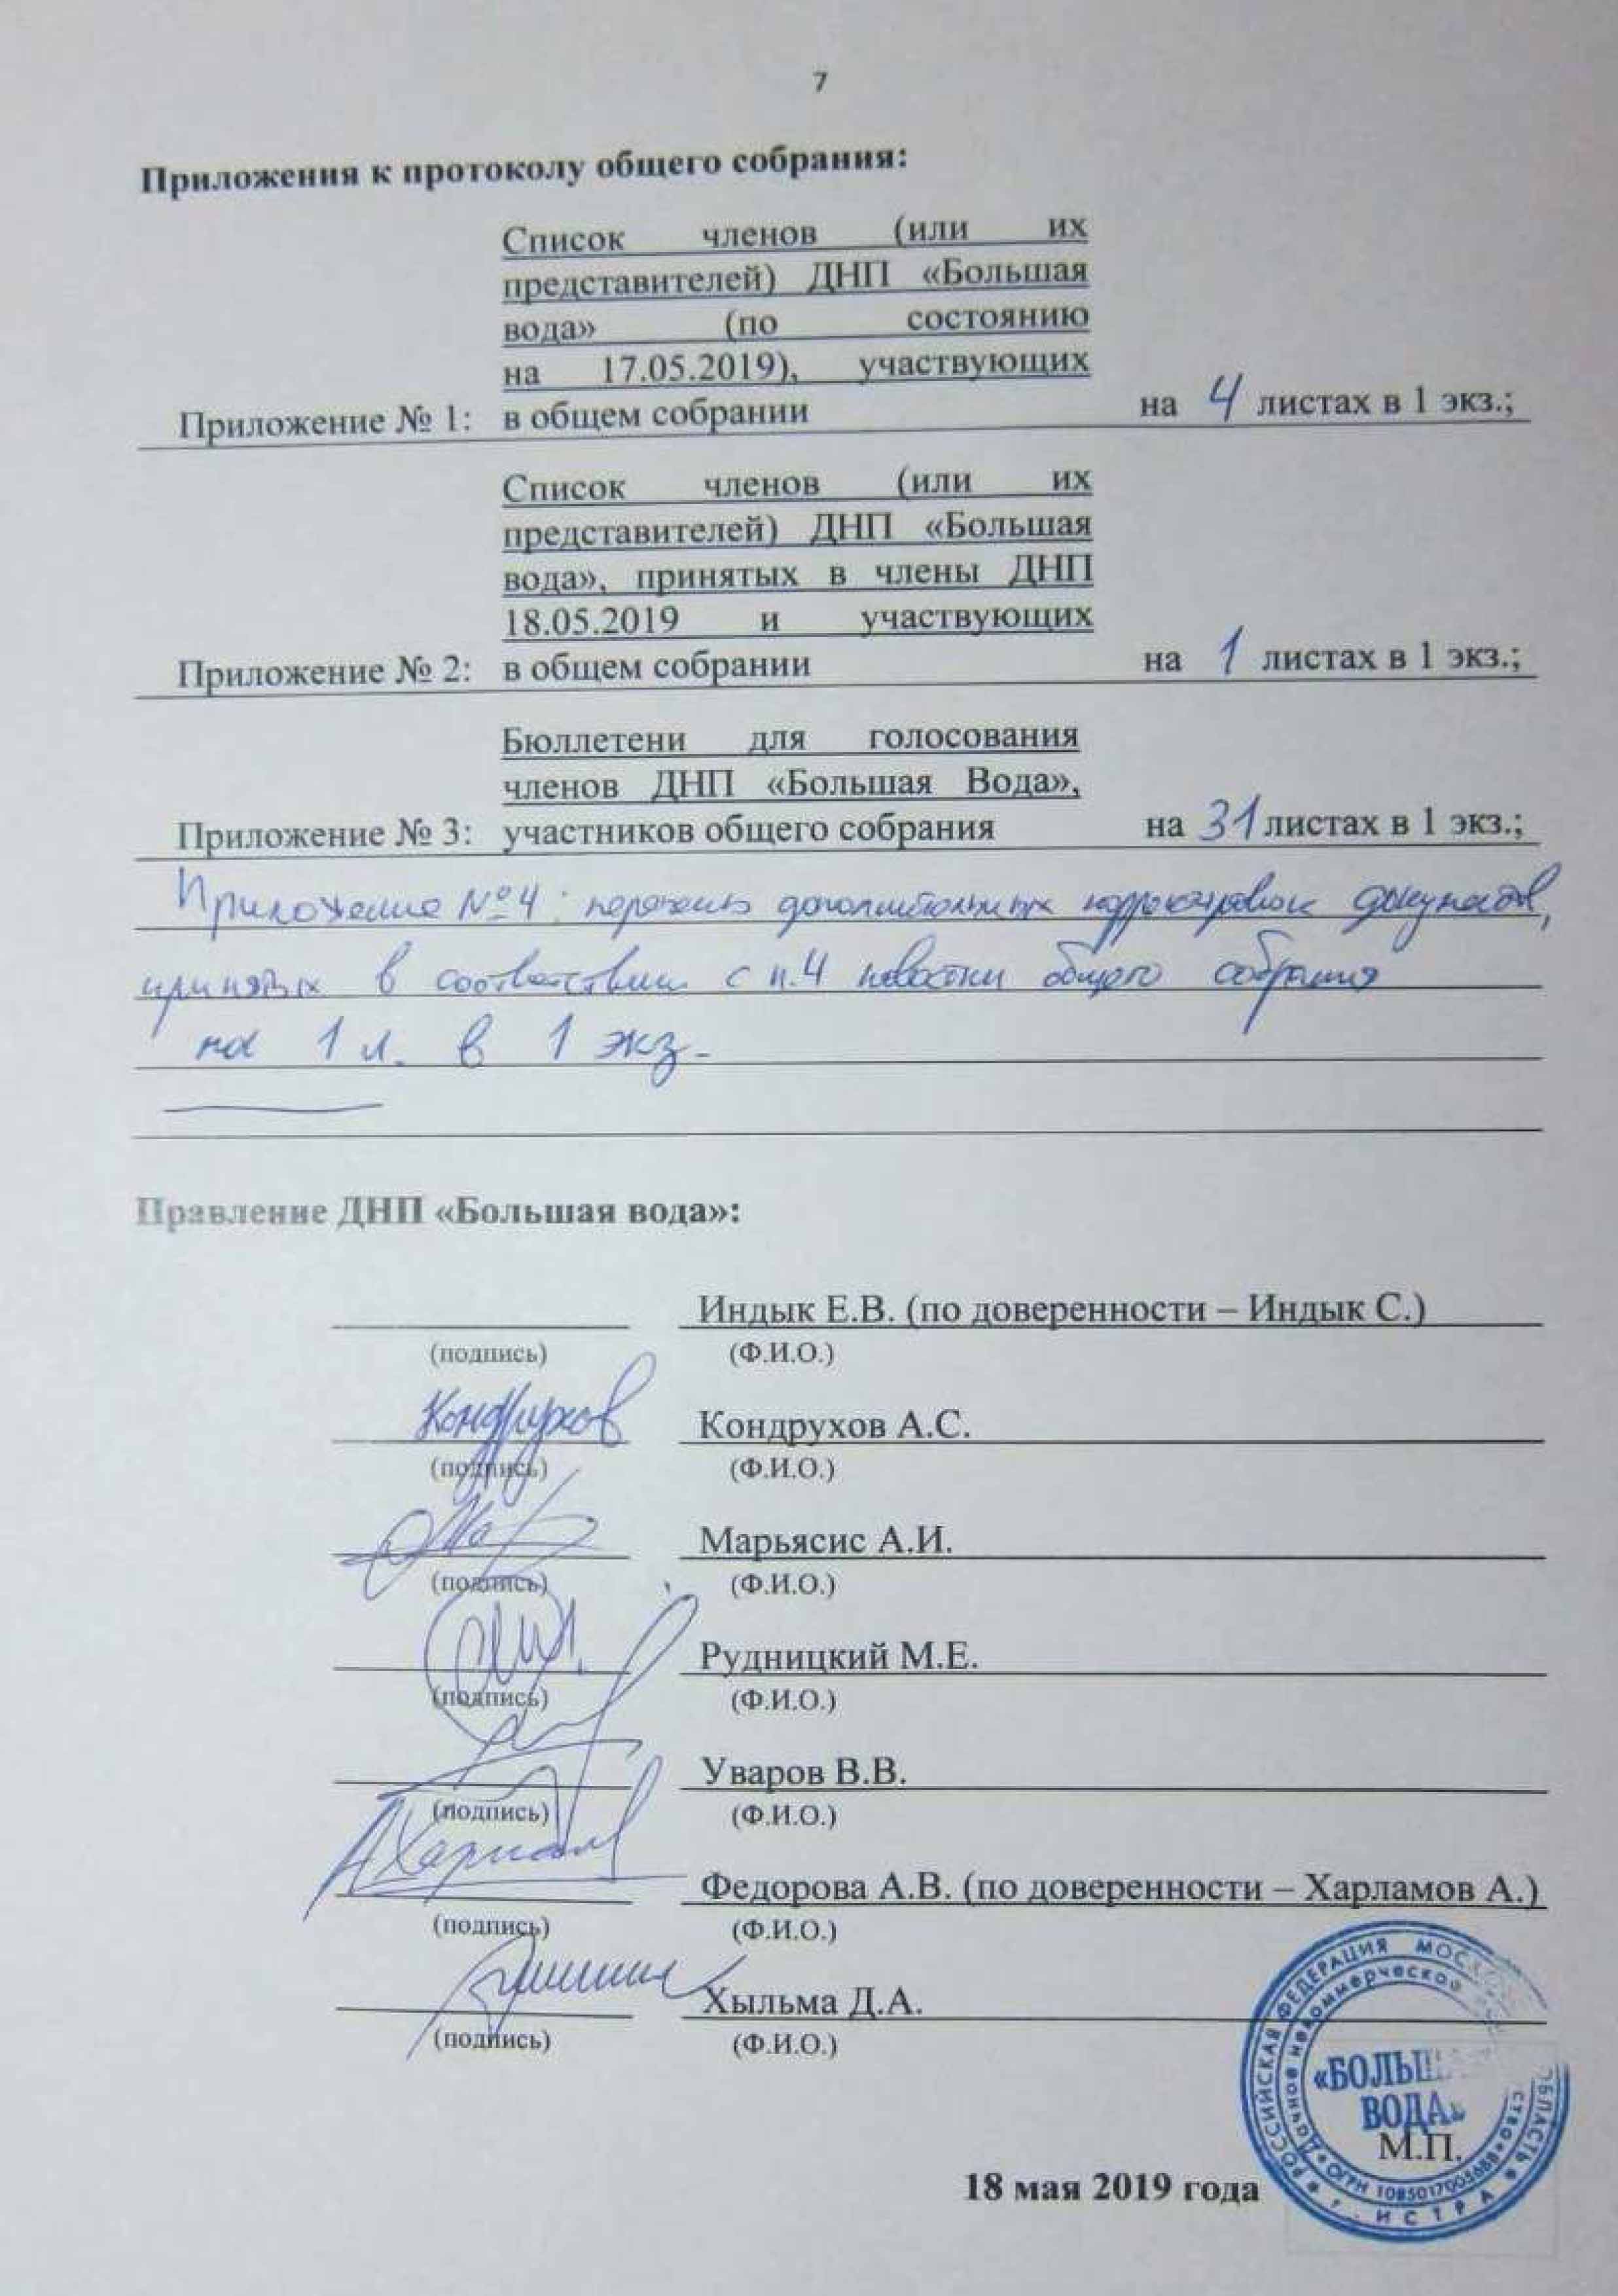 7
Приложения к протоколу общего собрания:
Список членов (или их
представителей) ДНП «Большая
вода» (по состоянию
на 17.05.2019), участвующих
Приложение № 1: в общем собрании на 4 листах в 1 экз.;
Список членов (или их
представителей) ДНП «Большая
вода», принятых в члены ДНП
18.05.2019 и участвующих
Приложение № 2: в общем собрании на 1 листах в 1 экз.;
Бюллетени для голосования
членов ДНП «Большая Вода»,
Приложение № 3: участников общего собрания на 31 листах в 1 экз.;
Приложение №4: перечень дополнительных корректировок документов,
принятых в соответствии с п.4 повестки общего собрания
на 1 л. в 1 экз.
Правление ДНП «Большая вода»:
Индык Е.В. (по доверенности – Индык С.)
(подпись) (Ф.И.О.)
Кондрухов Кондрухов А.С.
(подпись) (Ф.И.О.)
Марьясис А.И.
(подпись) (Ф.И.О.)
Рудницкий М.Е.
(подпись) (Ф.И.О.)
Уваров В.В.
(подпись) (Ф.И.О.)
АХарламов Федорова А.В. (по доверенности – Харламов А.)
(подпись) (Ф.И.О.)
Хыльма Д.А.
(подпись) (Ф.И.О.)
РОССИЙСКАЯ ФЕДЕРАЦИЯ МОСК ОБЛАСТЬ
Дачное некоммерческое ство
«БОЛЬША
ВОДА»
ОГРН 1085017003688
г. ИСТРА
М.П.
18 мая 2019 года